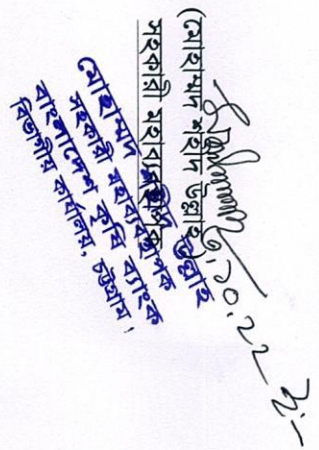 (মোহাম্মদ শহীদ উল্লাহ)
সহকারী মহাব্যবস্থাপক
মোহাম্মদ শহীদ উল্লাহ
সহকারী মহাব্যবস্থাপক
বাংলাদেশ কৃষি ব্যাংক
বিভাগীয় কার্যালয়, চট্টগ্রাম।